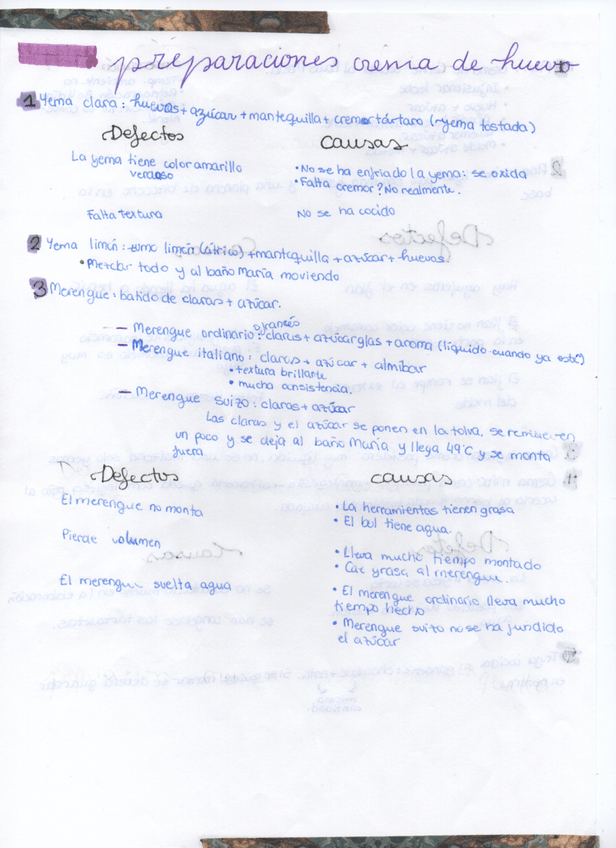 preparaciones crema de huevo
1 Yema clara: huevos + azúcar + mantequilla + cremor tártaro (~yema tostada)
Defectos Causas
La yema tiene color amarillo verdoso
• No se ha enfriado la yema: se oxida
• Falta cremor? No realmente.
Falta textura No se ha cocido
2 Yema limón: zumo limón (cítrico) + mantequilla + azúcar + huevos.
• Mezclar todo y al baño María moviendo
3 Merengue: batido de claras + azúcar.
— Merengue ordinario o francés: claras + azúcar glas + aroma (líquido cuando ya esté)
— Merengue italiano: claras + azúcar + almíbar
• textura brillante
• mucha consistencia.
— Merengue suizo: claras + azúcar
Las claras y el azúcar se ponen en la tolva, se remueven
un poco y se deja al baño María y llega 49°C y se monta
fuera
Defectos causas
El merengue no monta
• La herramientas tienen grasa
• El bul tiene agua.
Pierde volumen
• Lleva mucho tiempo montado
• Cae grasa al merengue.
El merengue suelta agua
• El merengue ordinario lleva mucho
tiempo hecho
• Merengue suizo no se ha fundido
el azúcar